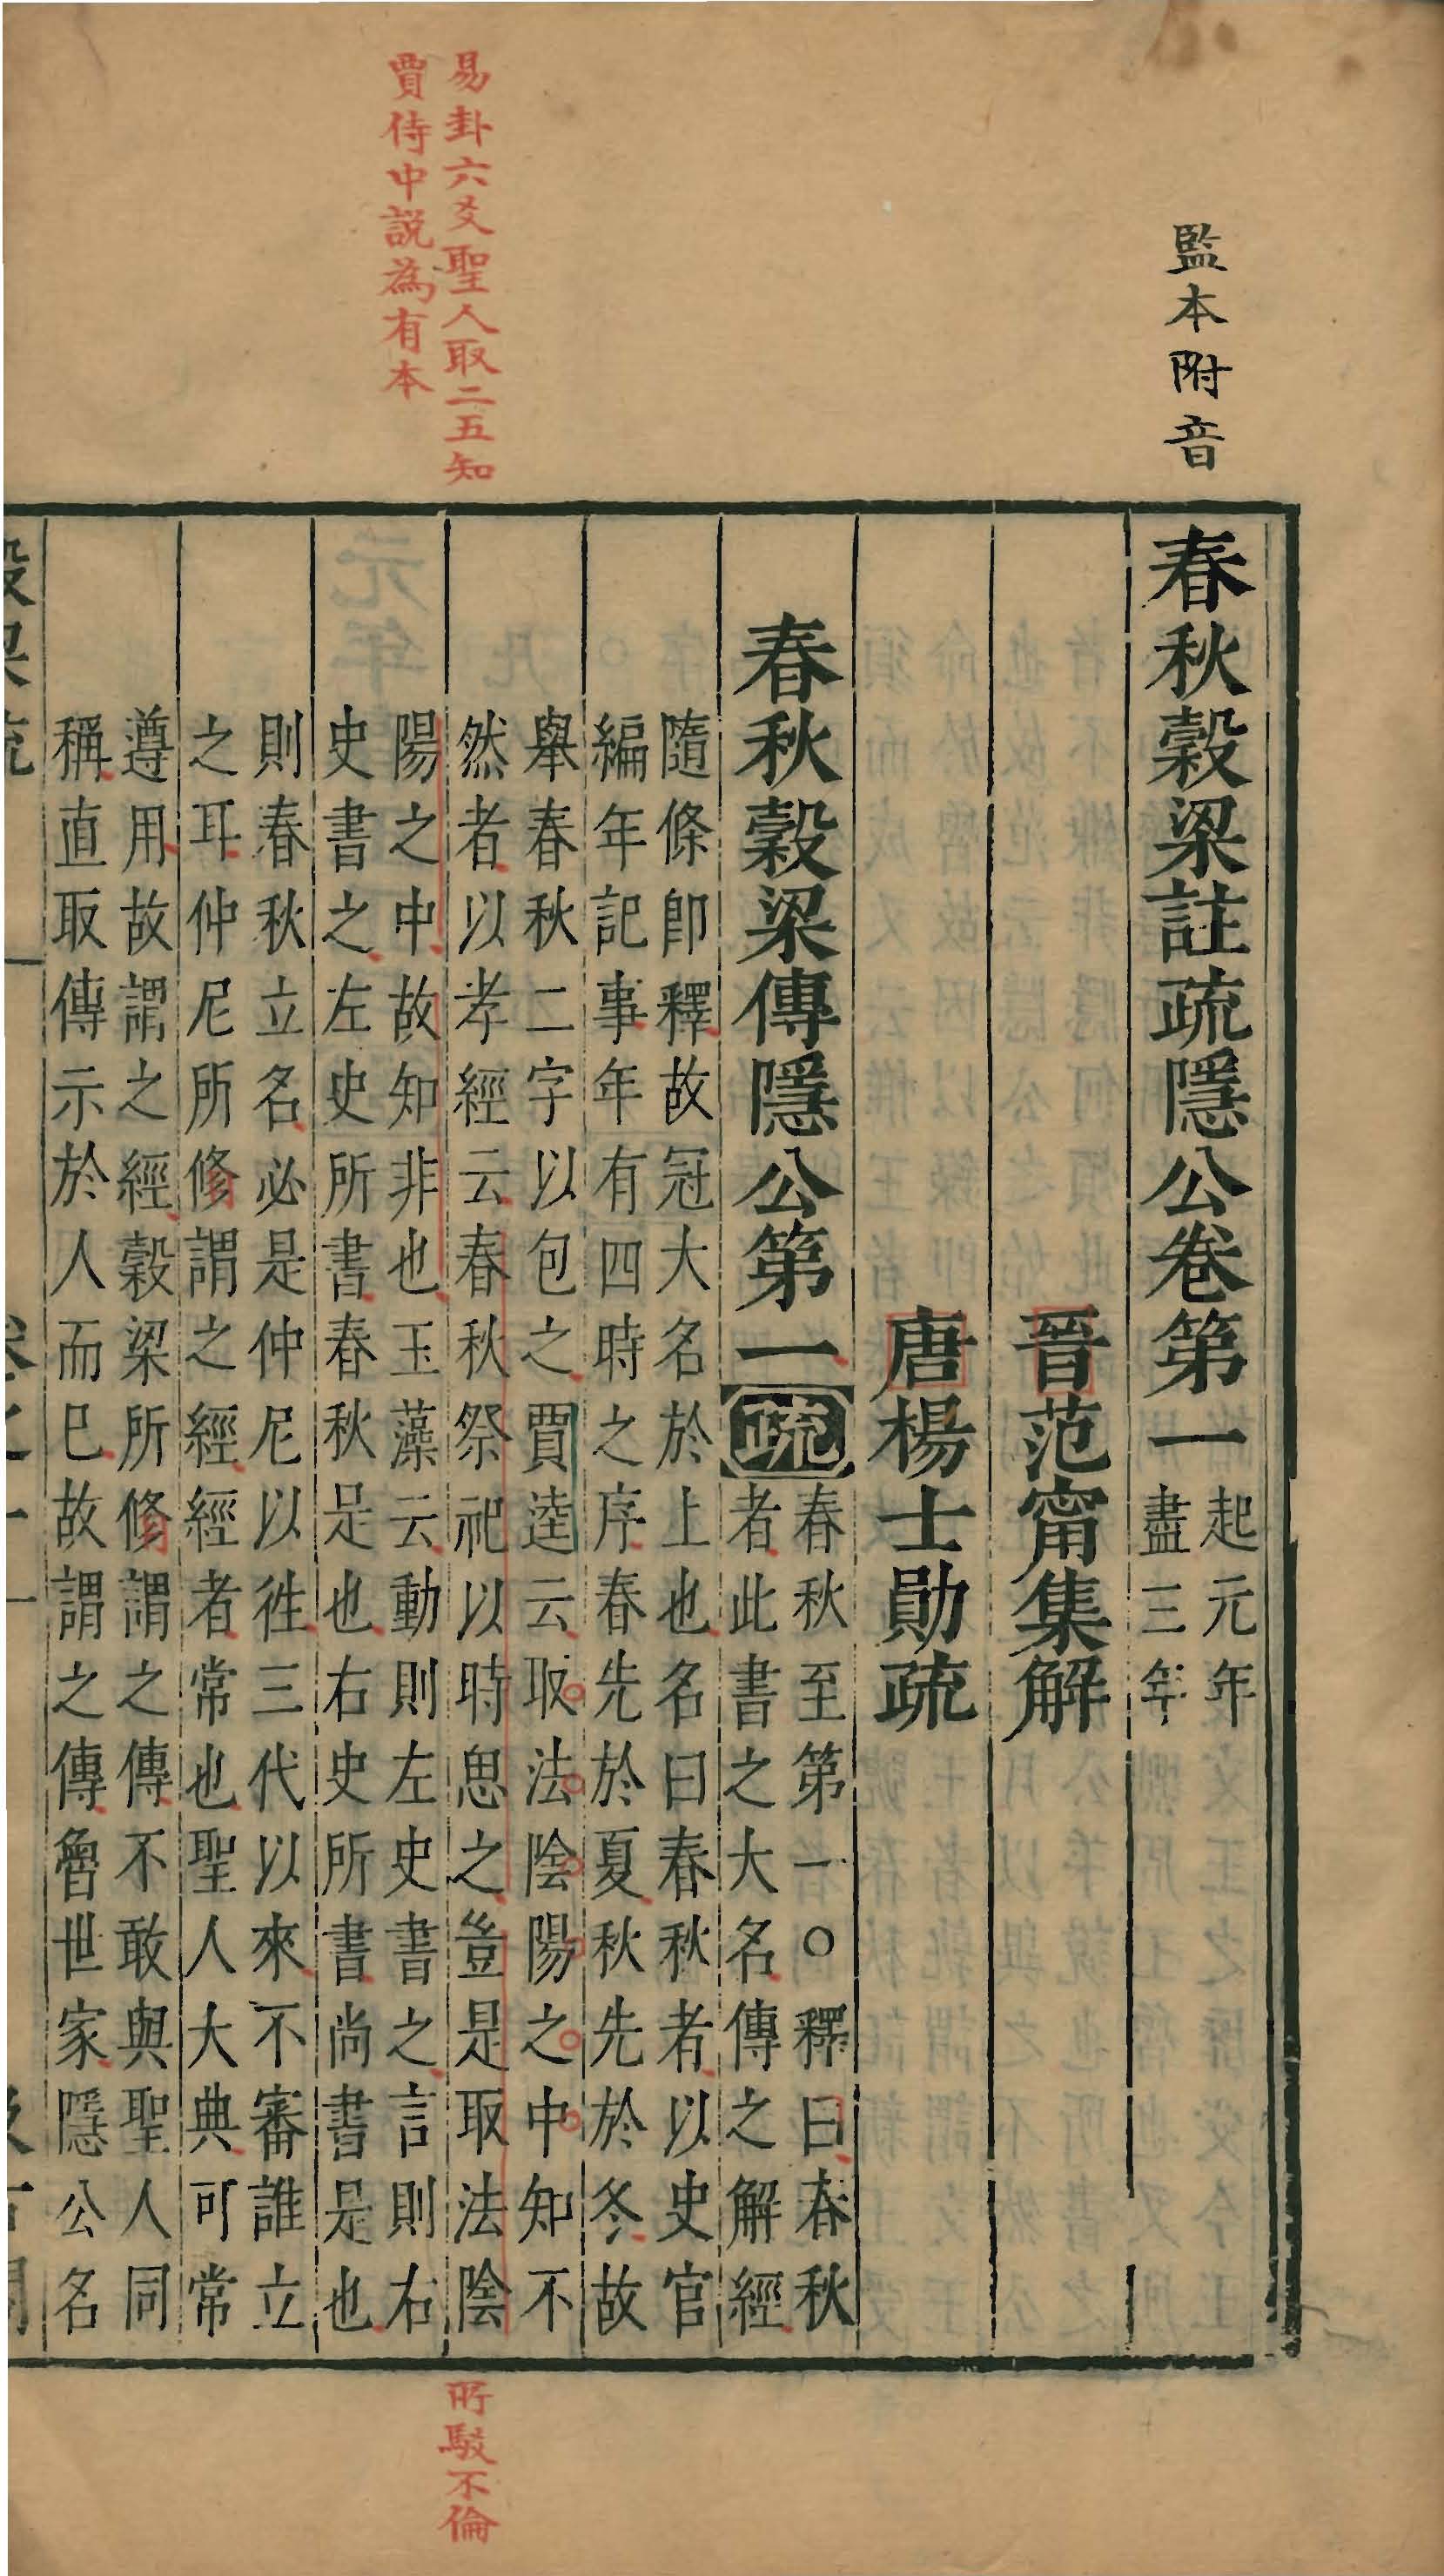 監本附音
易卦六爻聖人取二五知
賈侍中説為有本
春秋穀梁註疏隱公卷第一
起元年
盡三年
晉范甯集解
唐楊士勛疏
春秋穀梁傳隱公第一疏
春秋至第一○釋曰春秋
者此書之大名傳之解經
隨條即釋故冠大名於上也名曰春秋者以史官
編年記事年有四時之序春先於夏秋先於冬故
舉春秋二字以包之賈逵云取法陰陽之中知不
然者以孝經云春秋祭祀以時思之豈是取法陰
陽之中故知非也玉藻云動則左史書之言則右
史書之左史所書春秋是也右史所書尚書是也
則春秋立名必是仲尼以徃三代以來不審誰立
之耳仲尼所修謂之經經者常也聖人大典可常
遵用故謂之經穀梁所修謂之傳不敢與聖人同
稱直取傳示於人而巳故謂之傳魯世家隱公名
所駁不倫